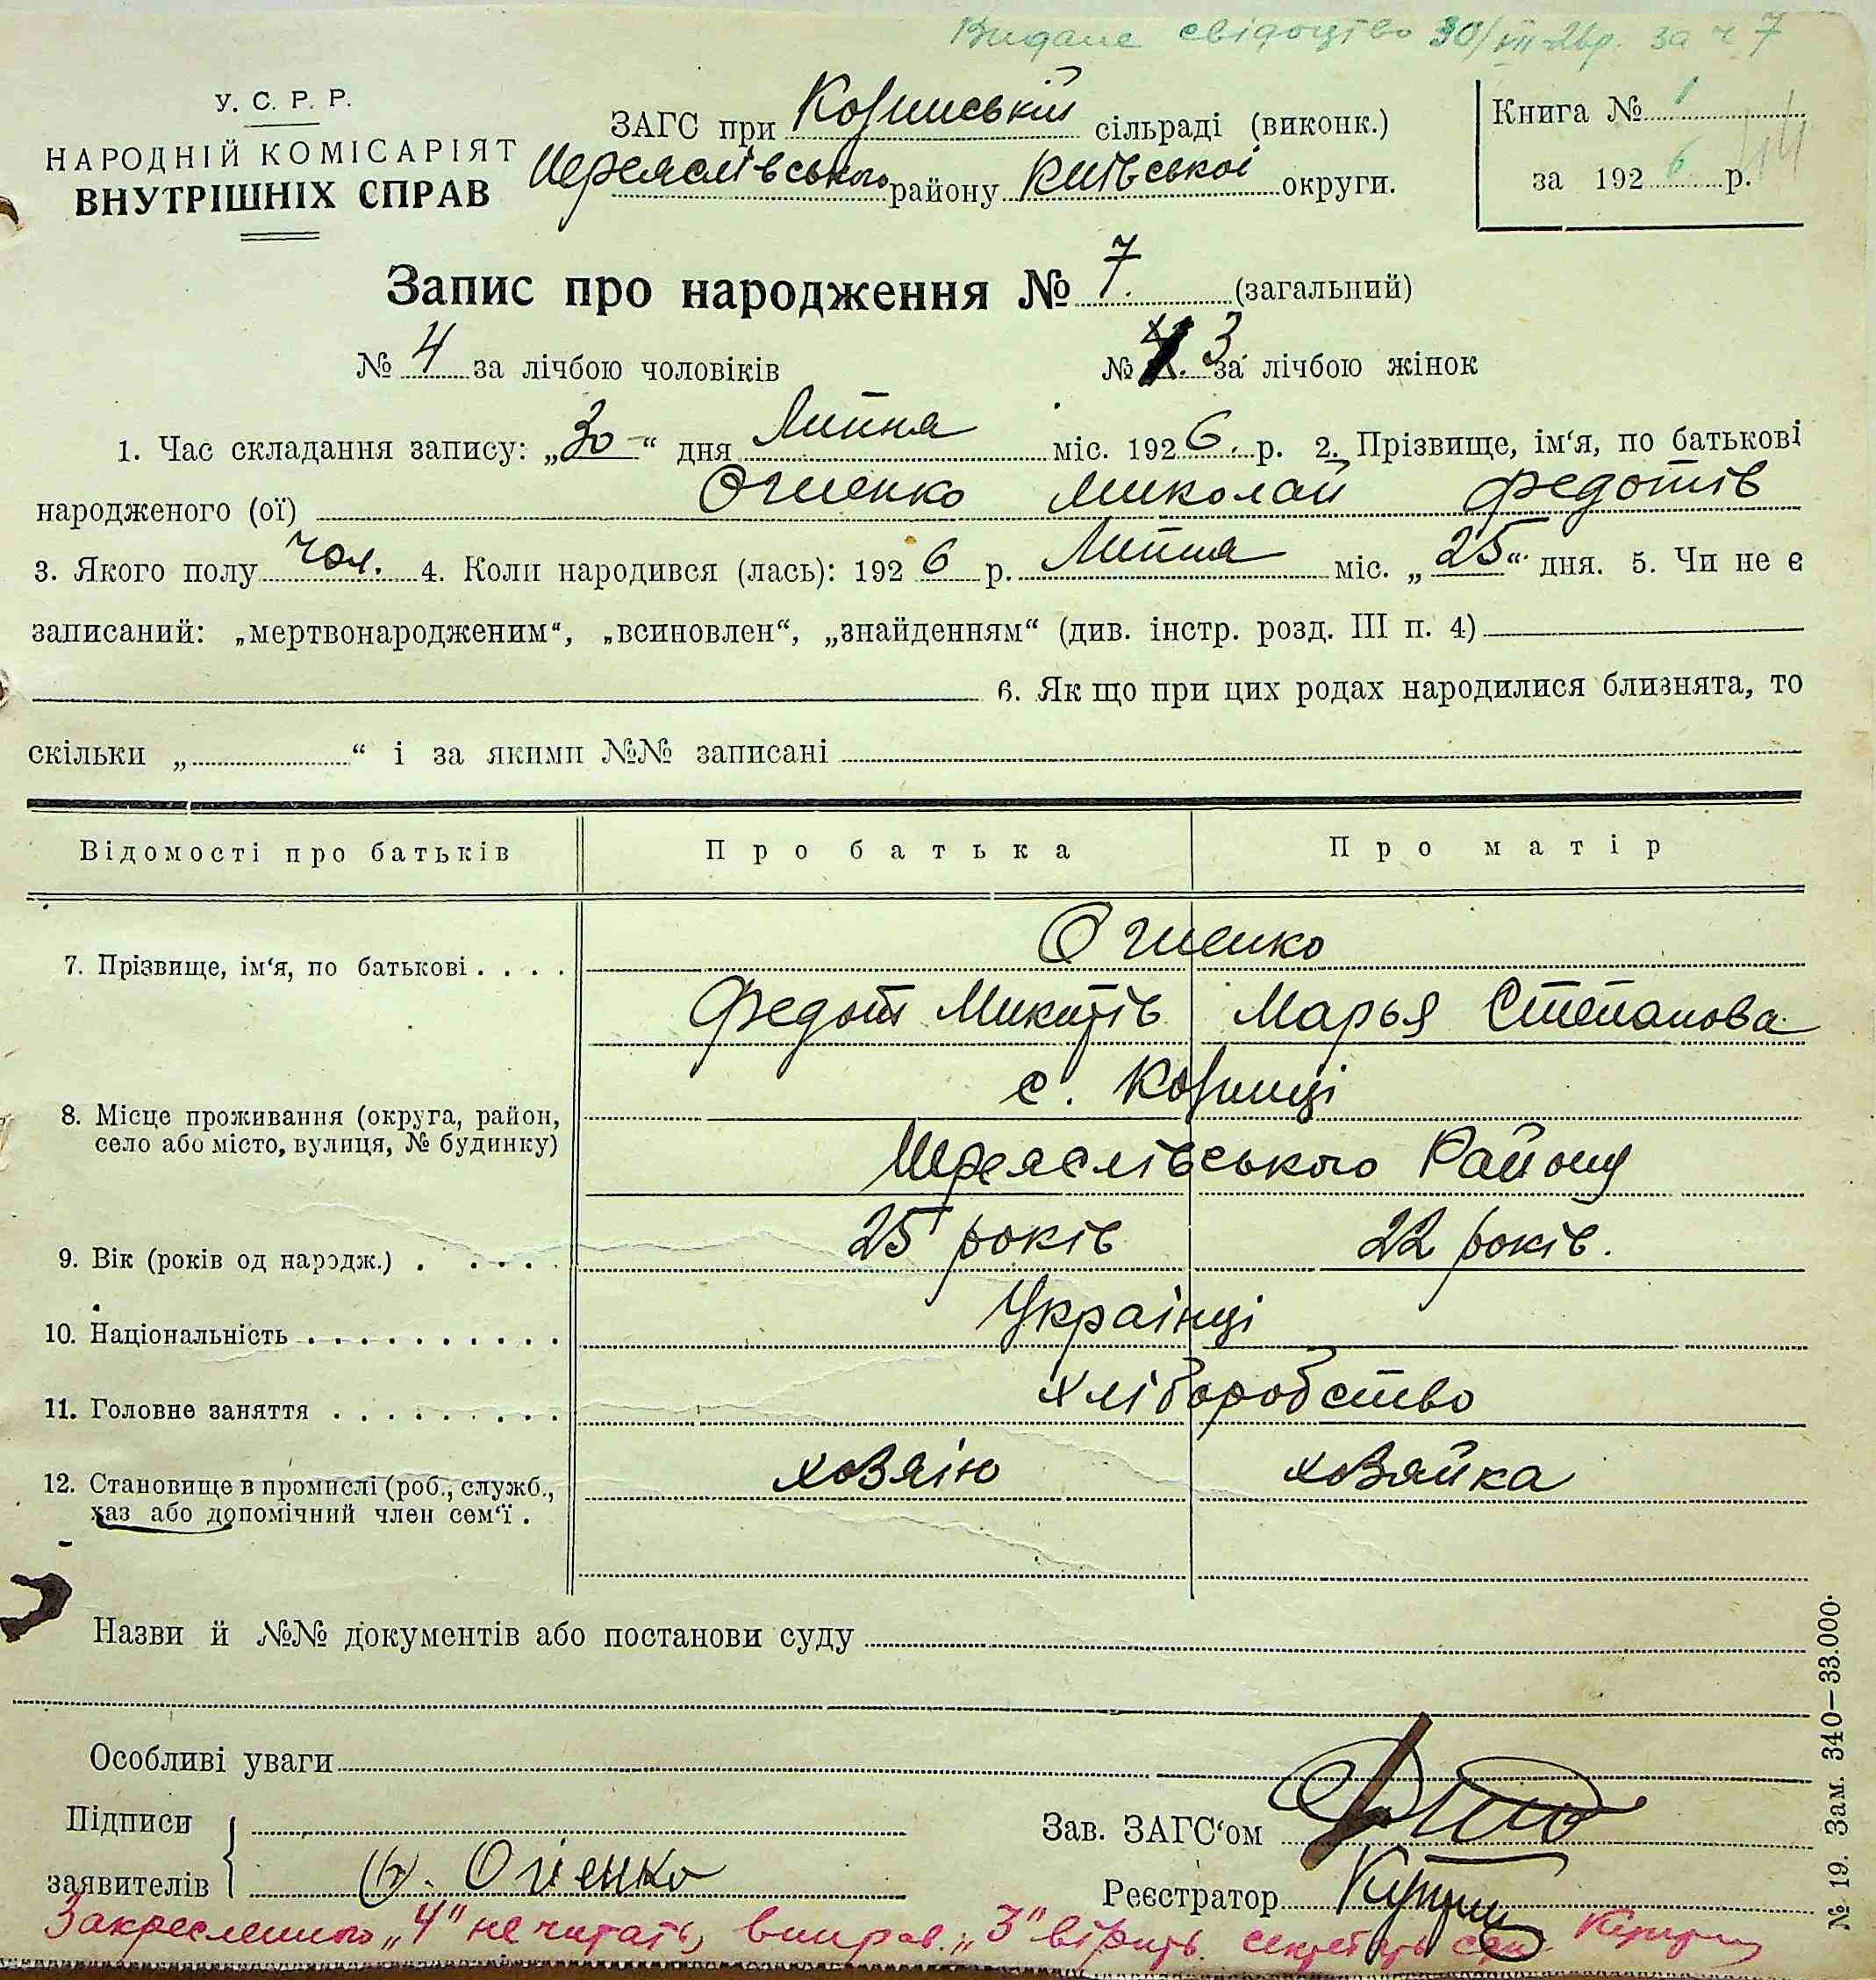 Видане свідоцтво 30/VII-26р. за ч 7
У. С. Р. Р.
НАРОДНІЙ КОМІСАРІЯТ
ВНУТРІШНІХ СПРАВ
ЗАГС при сільраді (виконк.)
Переяслівського району Київської округи.
Книга № 1
за 1926 р.
Запис про народження № 7. (загальний)
№ 4 за лічбою чоловіків № 3 за лічбою жінок
1. Час складання запису: „30“ дня Липня міс. 1926. р. 2. Прізвище, ім'я, по батькові
народженого (ої) Огиенко Миколай Федотів
3. Якого полу чол. 4. Коли народився (лась): 1926 р. Липня міс. „25“ дня. 5. Чи не є
записаний: „мертвонародженим“, „всиновлен“, „знайденням“ (див. інстр. розд. III п. 4)
6. Як що при цих родах народилися близнята, то
скільки „ “ і за якими №№ записані
Відомості про батьків Про батька Про матір
7. Прізвище, ім'я, по батькові . . . . Огиенко
Федот Микитів Марья Степанова
8. Місце проживання (округа, район,
село або місто, вулиця, № будинку)
с.
Переяслівського Району
9. Вік (років од народж.) . . . . . 25 років 22 років.
10. Національність . . . . . . . . . . Українці
11. Головне заняття . . . . . . . . . Хліборобство
12. Становище в промислі (роб., служб.,
хаз або допомічний член сем'ї .
ховяїн ховяйка
Назви й №№ документів або постанови суду
Особливі уваги
Підписи
заявителів
Огіенко
Зав. ЗАГС'ом
Реєстратор
Закресленого „4“ не читать, виправ. „3“ вірить. секретарь
№ 19. Зам. 340—33.000.